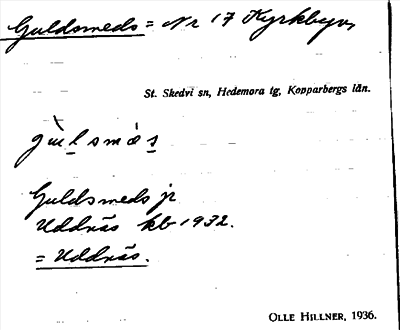 Guldsmeds = Nr 17 Kyrkbyn,
St. Skedvi sn, Hedemora tg, Kopparbergs län.
Guldsmeds jr
Uddnäs kb 1932.
= Uddnäs.
OLLE HILLNER, 1936.